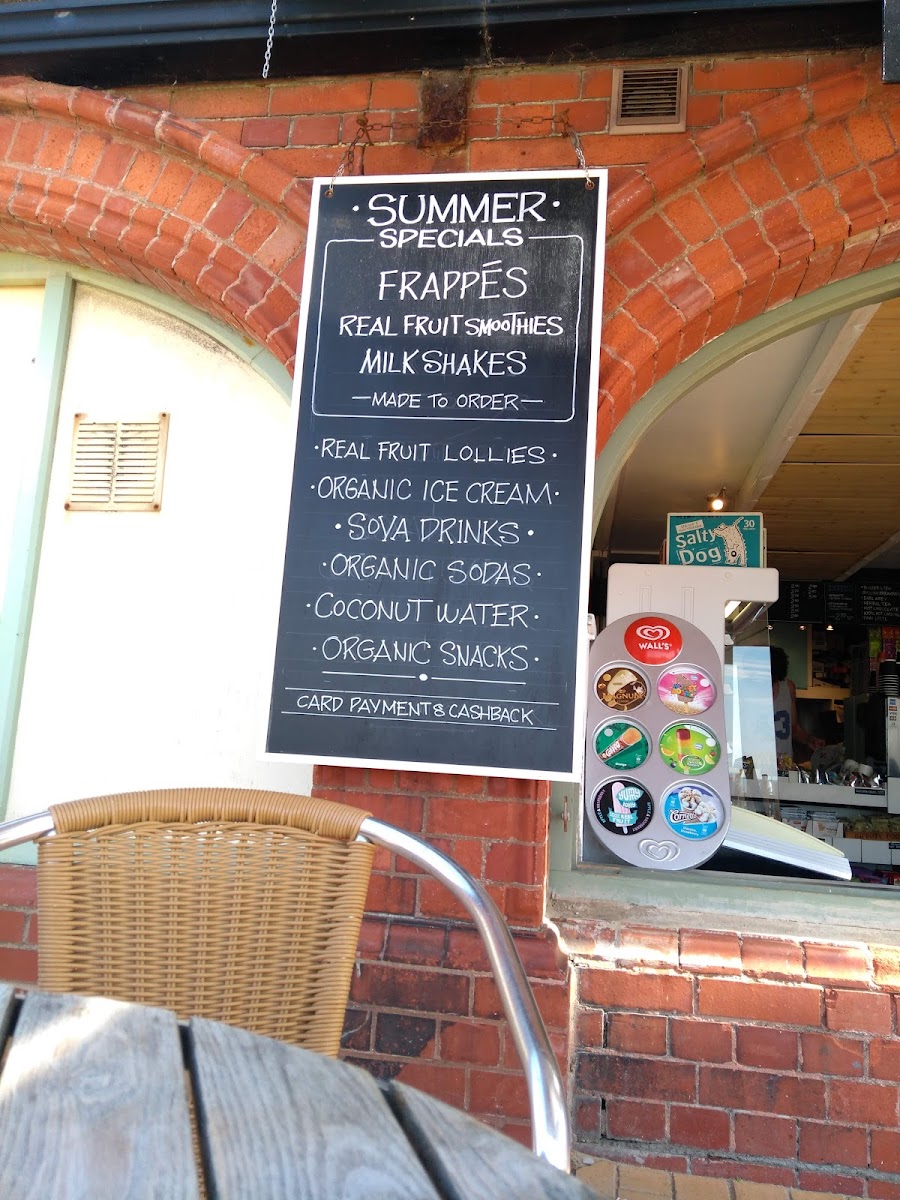 ·SUMMER·
SPECIALS
FRAPPÉS
REAL FRUIT SMOOTHIES
MILKSHAKES
—MADE TO ORDER—
·REAL FRUIT LOLLIES·
·ORGANIC ICE CREAM·
·SOYA DRINKS·
·ORGANIC SODAS·
·COCONUT WATER·
·ORGANIC SNACKS·
CARD PAYMENT & CASHBACK
Salty
Dog
30
WALL'S
MAGNUM